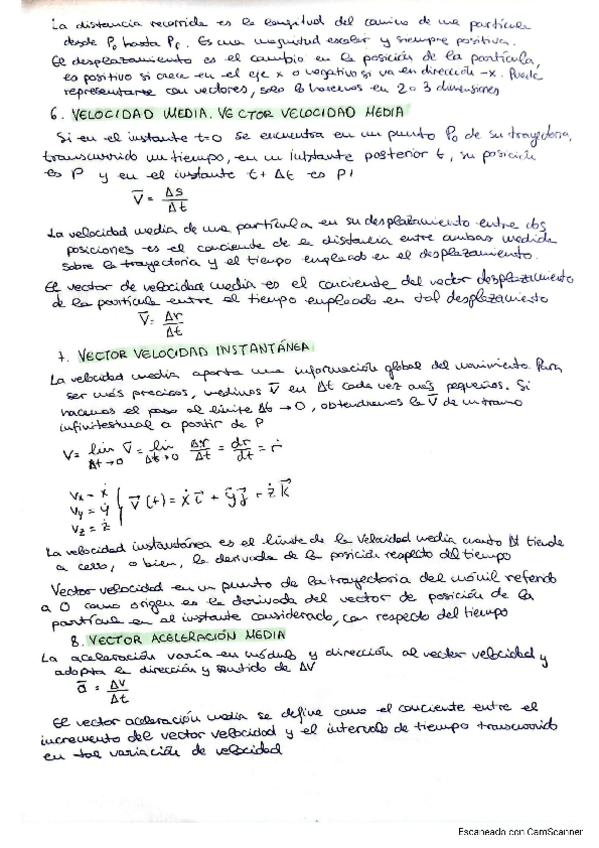 La distancia recorrida es la longitud del camino de una partícula
desde P₀ hasta Pf. Es una magnitud escalar y siempre positiva.
El desplazamiento es el cambio en la posición de la partícula,
es positivo si crece en el eje x o negativo si va en dirección -x. Puede
representarse con vectores, solo lo haremos en 2 o 3 dimensiones
6. VELOCIDAD MEDIA. VECTOR VELOCIDAD MEDIA
Si en el instante t=0 se encuentra en un punto P₀ de su trayectoria,
transcurrido un tiempo, en un instante posterior t, su posición
es P y en el instante t + Δt es P'
V̄ = Δs / Δt
La velocidad media de una partícula en su desplazamiento entre dos
posiciones es el cociente de la distancia entre ambas medida
sobre la trayectoria y el tiempo empleado en el desplazamiento.
El vector de velocidad media es el cociente del vector desplazamiento
de la partícula entre el tiempo empleado en tal desplazamiento
V̄ = Δr / Δt
7. VECTOR VELOCIDAD INSTANTÁNEA
La velocidad media aporta una información global del movimiento. Para
ser más precisos, medimos V̄ en Δt cada vez más pequeños. Si
hacemos el paso al límite Δt → 0, obtendremos la V̄ de un tramo
infinitesimal a partir de P
V = lim Δt→0 V̄ = lim Δt→0 Δr / Δt = dr / dt = ṙ
Vx = ẋ
Vy = ẏ } V⃗ (t) = ẋ i⃗ + ẏ j⃗ + ż k⃗
Vz = ż
La velocidad instantánea es el límite de la velocidad media cuando Δt tiende
a cero, o bien, la derivada de la posición respecto del tiempo
Vector velocidad en un punto de la trayectoria del móvil referido
a O como origen es la derivada del vector de posición de la
partícula en el instante considerado, con respecto del tiempo
8. VECTOR ACELERACIÓN MEDIA
La aceleración varía en módulo y dirección al vector velocidad y
adopta la dirección y sentido de ΔV
ā = ΔV / Δt
El vector aceleración media se define como el cociente entre el
incremento del vector velocidad y el intervalo de tiempo transcurrido
en tal variación de velocidad
Escaneado con CamScanner